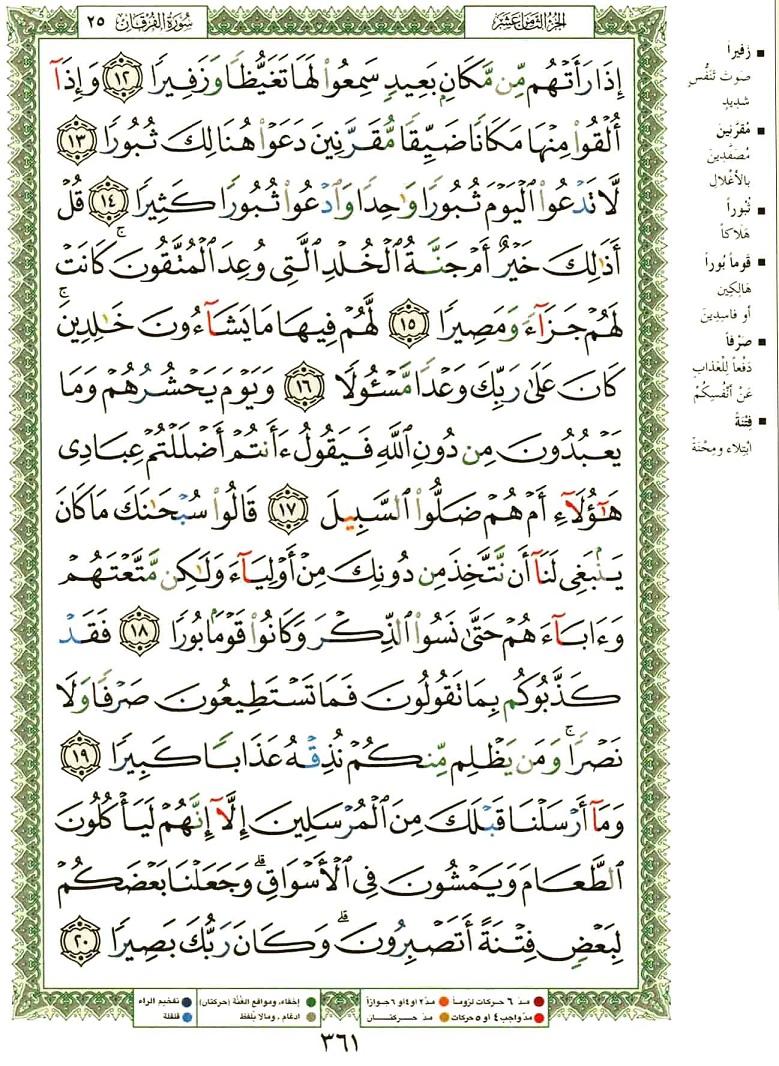 الجزء الثامن عشر
سورة الفرقان ٢٥
إِذَا رَأَتْهُم مِّن مَّكَانٍ بَعِيدٍ سَمِعُوا۟ لَهَا تَغَيُّظًا وَزَفِيرًا ١٢ وَإِذَآ
أُلْقُوا۟ مِنْهَا مَكَانًا ضَيِّقًا مُّقَرَّنِينَ دَعَوْا۟ هُنَالِكَ ثُبُورًا ١٣
لَّا تَدْعُوا۟ ٱلْيَوْمَ ثُبُورًا وَٰحِدًا وَٱدْعُوا۟ ثُبُورًا كَثِيرًا ١٤ قُلْ
أَذَٰلِكَ خَيْرٌ أَمْ جَنَّةُ ٱلْخُلْدِ ٱلَّتِى وُعِدَ ٱلْمُتَّقُونَ ۚ كَانَتْ
لَهُمْ جَزَآءً وَمَصِيرًا ١٥ لَّهُمْ فِيهَا مَا يَشَآءُونَ خَٰلِدِينَ ۚ
كَانَ عَلَىٰ رَبِّكَ وَعْدًا مَّسْـُٔولًا ١٦ وَيَوْمَ يَحْشُرُهُمْ وَمَا
يَعْبُدُونَ مِن دُونِ ٱللَّهِ فَيَقُولُ ءَأَنتُمْ أَضْلَلْتُمْ عِبَادِى
هَٰٓؤُلَآءِ أَمْ هُمْ ضَلُّوا۟ ٱلسَّبِيلَ ١٧ قَالُوا۟ سُبْحَٰنَكَ مَا كَانَ
يَنۢبَغِى لَنَآ أَن نَّتَّخِذَ مِن دُونِكَ مِنْ أَوْلِيَآءَ وَلَٰكِن مَّتَّعْتَهُمْ
وَءَابَآءَهُمْ حَتَّىٰ نَسُوا۟ ٱلذِّكْرَ وَكَانُوا۟ قَوْمًۢا بُورًا ١٨ فَقَدْ
كَذَّبُوكُم بِمَا تَقُولُونَ فَمَا تَسْتَطِيعُونَ صَرْفًا وَلَا
نَصْرًا ۚ وَمَن يَظْلِم مِّنكُمْ نُذِقْهُ عَذَابًا كَبِيرًا ١٩
وَمَآ أَرْسَلْنَا قَبْلَكَ مِنَ ٱلْمُرْسَلِينَ إِلَّآ إِنَّهُمْ لَيَأْكُلُونَ
ٱلطَّعَامَ وَيَمْشُونَ فِى ٱلْأَسْوَاقِ ۗ وَجَعَلْنَا بَعْضَكُمْ
لِبَعْضٍ فِتْنَةً أَتَصْبِرُونَ ۗ وَكَانَ رَبُّكَ بَصِيرًا ٢٠
■ زَفيراً
صَوتَ تَنَفُّسٍ
شديدٍ
■ مُقَرَّنينَ
مُصَفَّدِينَ
بالأغْلالِ
■ ثُبُوراً
هَلاكاً
■ قَوماً بُوراً
هَالِكِين
أو فاسِدِينَ
■ صَرْفاً
دَفْعاً لِلعَذابِ
عَنْ أنْفُسِكُمْ
■ فِتْنَةً
ابْتِلاءً ومِحْنَةً
مدّ ٦ حركات لزوماً مدّ ٢ او ٤ او ٦ جوازاً
مدّ واجب ٤ أو ٥ حركات مدّ حركتان
إخفاء، ومواقع الغُنَّة (حركتان) تفخيم الراء
ادغام، ومالا يُلفظ قلقلة
٣٦١